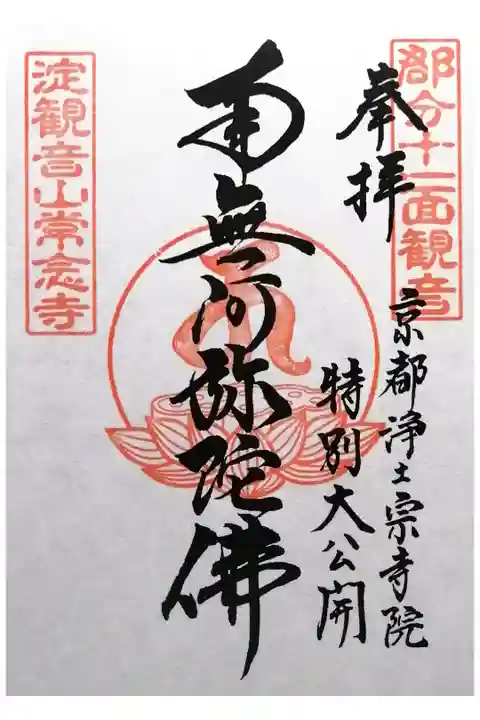 郡分十一面観音
奉拝
京都浄土宗寺院
特別大公開
南無阿弥陀佛
淀観音山常念寺